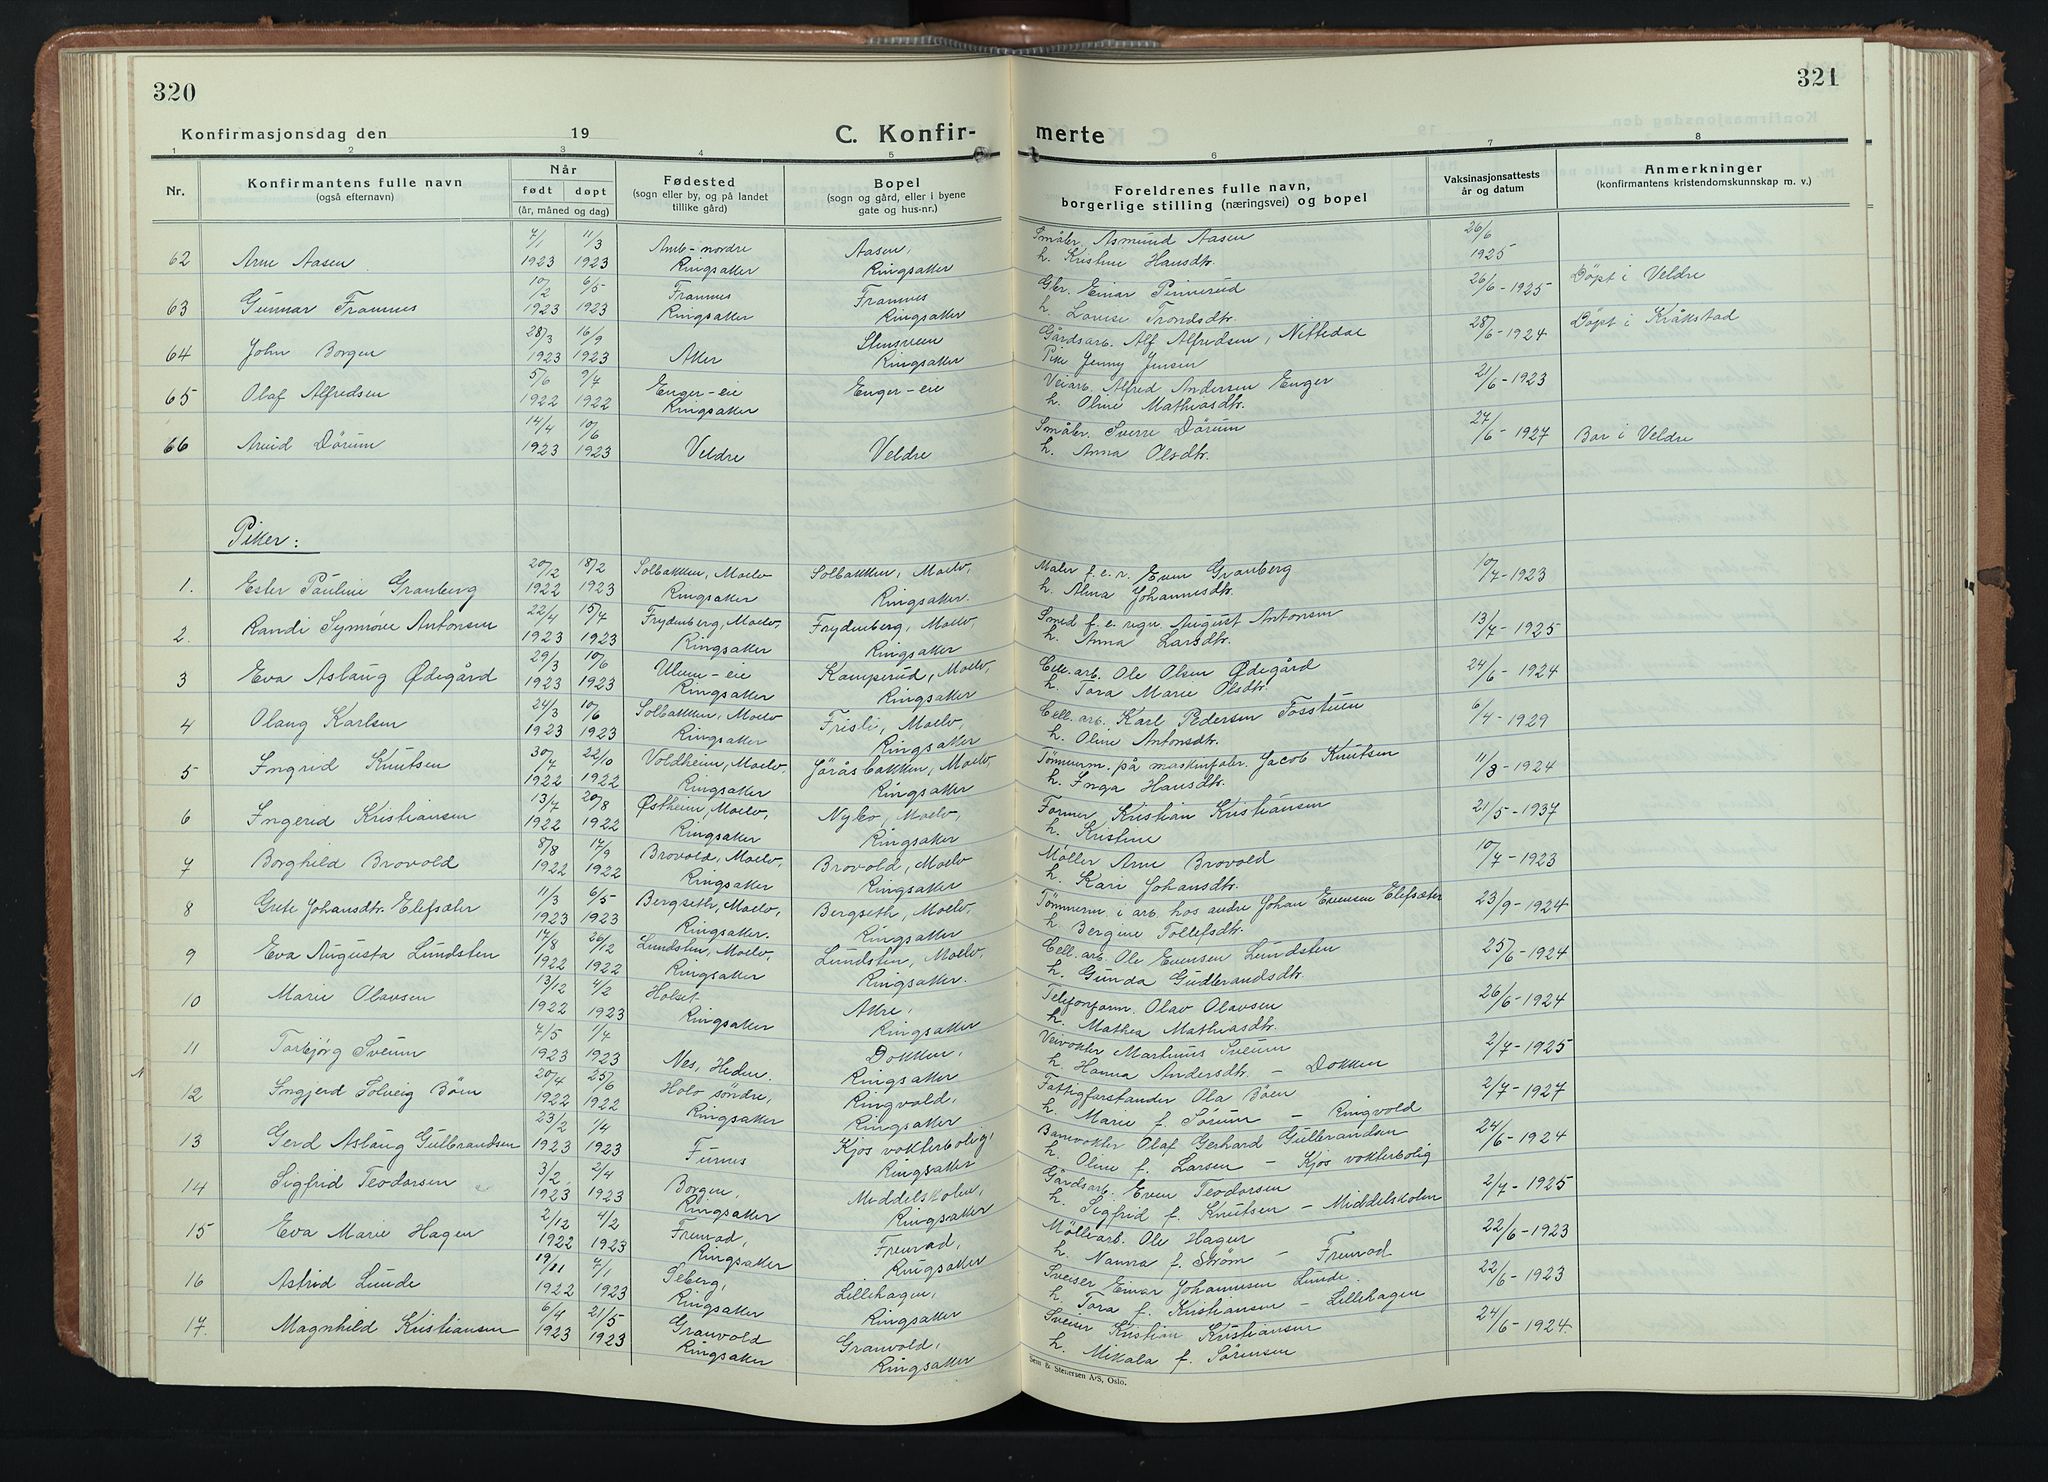 320
321
Konfirmasjonsdag den 19
C. Konfir-
merte
1 2 3 4 5 6 7 8
Nr.
Konfirmantens fulle navn
(også efternavn)
Når
født døpt
(år, måned og dag)
Fødested
(sogn eller by, og på landet
tillike gård)
Bopel
(sogn og gård, eller i byene
gate og hus-nr.)
Foreldrenes fulle navn,
borgerlige stilling (næringsvei) og bopel
Vaksinasjonsattests
år og datum
Anmerkninger
(konfirmantens kristendomskunnskap m. v.)
7/1 11/3 Amb-nordre Aasen, Småbr. Asmund Aasen 26/6
62 Arne Aasen 1923 1923 Ringsaker Ringsaker h. Kristine Hansdtr. 1925
10/2 6/5 Framnes Framnes Gbr. Einar Pinnerud 26/6-1925 Döpt i Veldre
63 Gunnar Framnes 1923 1923 Ringsaker Ringsaker h. Lovise Trondsdtr.
28/3 16/9 Stensveen Gårdsarb. Alf Alfredsen, Nittedal 28/6-1924 Döpt i Kråkstad
64 John Borgen 1923 1923 Aker Ringsaker Pike Jenny Jensen
5/6 9/7 Enger-eie Enger-eie Veiarb. Alfred Andersen Enger 21/6-1923
65 Olaf Alfredsen 1922 1922 Ringsaker h. Oline Mathiasdtr.
14/4 10/6 Småbr. Sverre Dörum 27/6-1927 Bor i Veldre
66 Arvid Dörum 1923 1923 Veldre Veldre h. Anna Olsdtr.
Piker:
20/12 18/2 Solbakken, Moelv Solbakken, Moelv, Maler f.e.r. Even Granberg 10/7-1923
1. Ester Pauline Granberg 1922 1923 Ringsaker Ringsaker. h. Alma Johannesdtr.
22/4 15/7 Frydenberg, Moelv, Frydenberg, Moelv Smed f.e. regn August Antonsen 13/7-1925
2. Randi Synnöve Antonsen 1923 1923 Ringsaker Ringsaker h. Anna Larsdtr.
29/3 10/6 Ulven-eie Kamperud, Moelv, Cell.arb. Ole Olsen Ødegård 24/6-1924
3 Eva Aslaug Ødegård 1923 1923 Ringsaker Ringsaker h. Tora Marie Olsdtr.
24/3 10/6 Solbakken, Moelv Frisli, Moelv, Cell. arb. Karl Pedersen Fosstuen 6/4-1929
4 Olaug Karlsen 1923 1923 Ringsaker Ringsaker h. Oline Antonsdtr.
30/7 22/10 Voldheim, Moelv, Göråsbakken, Moelv Tömmerm. på maskinfabr. Jacob Knutsen 11/3-1924
5 Ingrid Knutsen 1922 1922 Ringsaker Ringsaker h. Inga Hansdtr.
13/7 20/8 Østheim, Moelv, Nybo, Moelv, Former Kristian Kristiansen 21/5-1937
6 Ingerid Kristiansen 1922 1922 Ringsaker Ringsaker h. Kristine
8/8 17/9 Brovold, Moelv, Brovold, Moelv Möller Arne Brovold 10/7-1923
7 Borghild Brovold 1922 1922 Ringsaker Ringsaker h. Kari Johansdtr.
11/3 6/5 Bergseth, Moelv, Bergseth, Moelv, Tömmerm. i arb. hos andre Johan Evensen Elefsæter 23/9-1924
8 Grete Johansdtr. Elefsæter 1923 1923 Ringsaker. Ringsaker h. Bergine Tollefsdtr.
17/8 26/12 Lundsten, Moelv, Lundsten, Moelv, Cell.arb. Ole Evensen Lundsten 25/6-1924
9 Eva Augusta Lundsten 1922 1922 Ringsaker Ringsaker. h. Gunda Gudbrandsdtr.
13/12 4/2 Holset Akre, Telefonform. Olav Olavsen 26/6-1924
10 Marie Olavsen 1922 1923 Ringsaker Ringsaker h. Mathea Mathiasdtr.
7/5 1/4 Dokken, Veivokter Martinus Sveum 2/7-1925
11 Torbjörg Sveum 1923 1923 Nes, Heden. Ringsaker h. Hanna Andersdtr. - Dokken
20/4 25/6 Holo söndre, Ringvold, Fattigforstander Ola Böen 2/7-1927
12 Ingjerd Solveig Böen 1922 1922 Ringsaker Ringsaker h. Marie f. Sörum - Ringvold
23/2 1/4 Kjos vokterbolig, Banevokter Olaf Gerhard Gulbrandsen 24/6-1924
13 Gerd Aslaug Gulbrandsen 1923 1923 Furnes Ringsaker h. Oline f. Larsen - Kjos vokterbolig
3/2 2/4 Borgen, Middelskolen, Gårdsarb. Even Teodorsen 2/7-1925
14 Sigfrid Teodorsen 1923 1923 Ringsaker Ringsaker h. Sigfrid f. Knutsen - Middelskolen
2/12 4/2 Fremad, Fremad, Möllearb. Ole Hagen 22/6-1923
15 Eva Marie Hagen 1922 1923 Ringsaker Ringsaker h. Nanna f. Strøm - Fremad
19/11 7/1 Seberg, Lillehagen, Sveiser Einar Johannesen Lunde. 22/6-1923
16 Astrid Lunde 1922 1923 Ringsaker Ringsaker h. Tora f. Kristiansen - Lillehagen
6/4 21/5 Granvold Granvold, Sveiser Kristian Kristiansen 24/6-1924.
17. Magnhild Kristiansen 1923 1923 Ringsaker Ringsaker h. Mikala f. Sörensen
Sem & Stenersen A/S, Oslo.